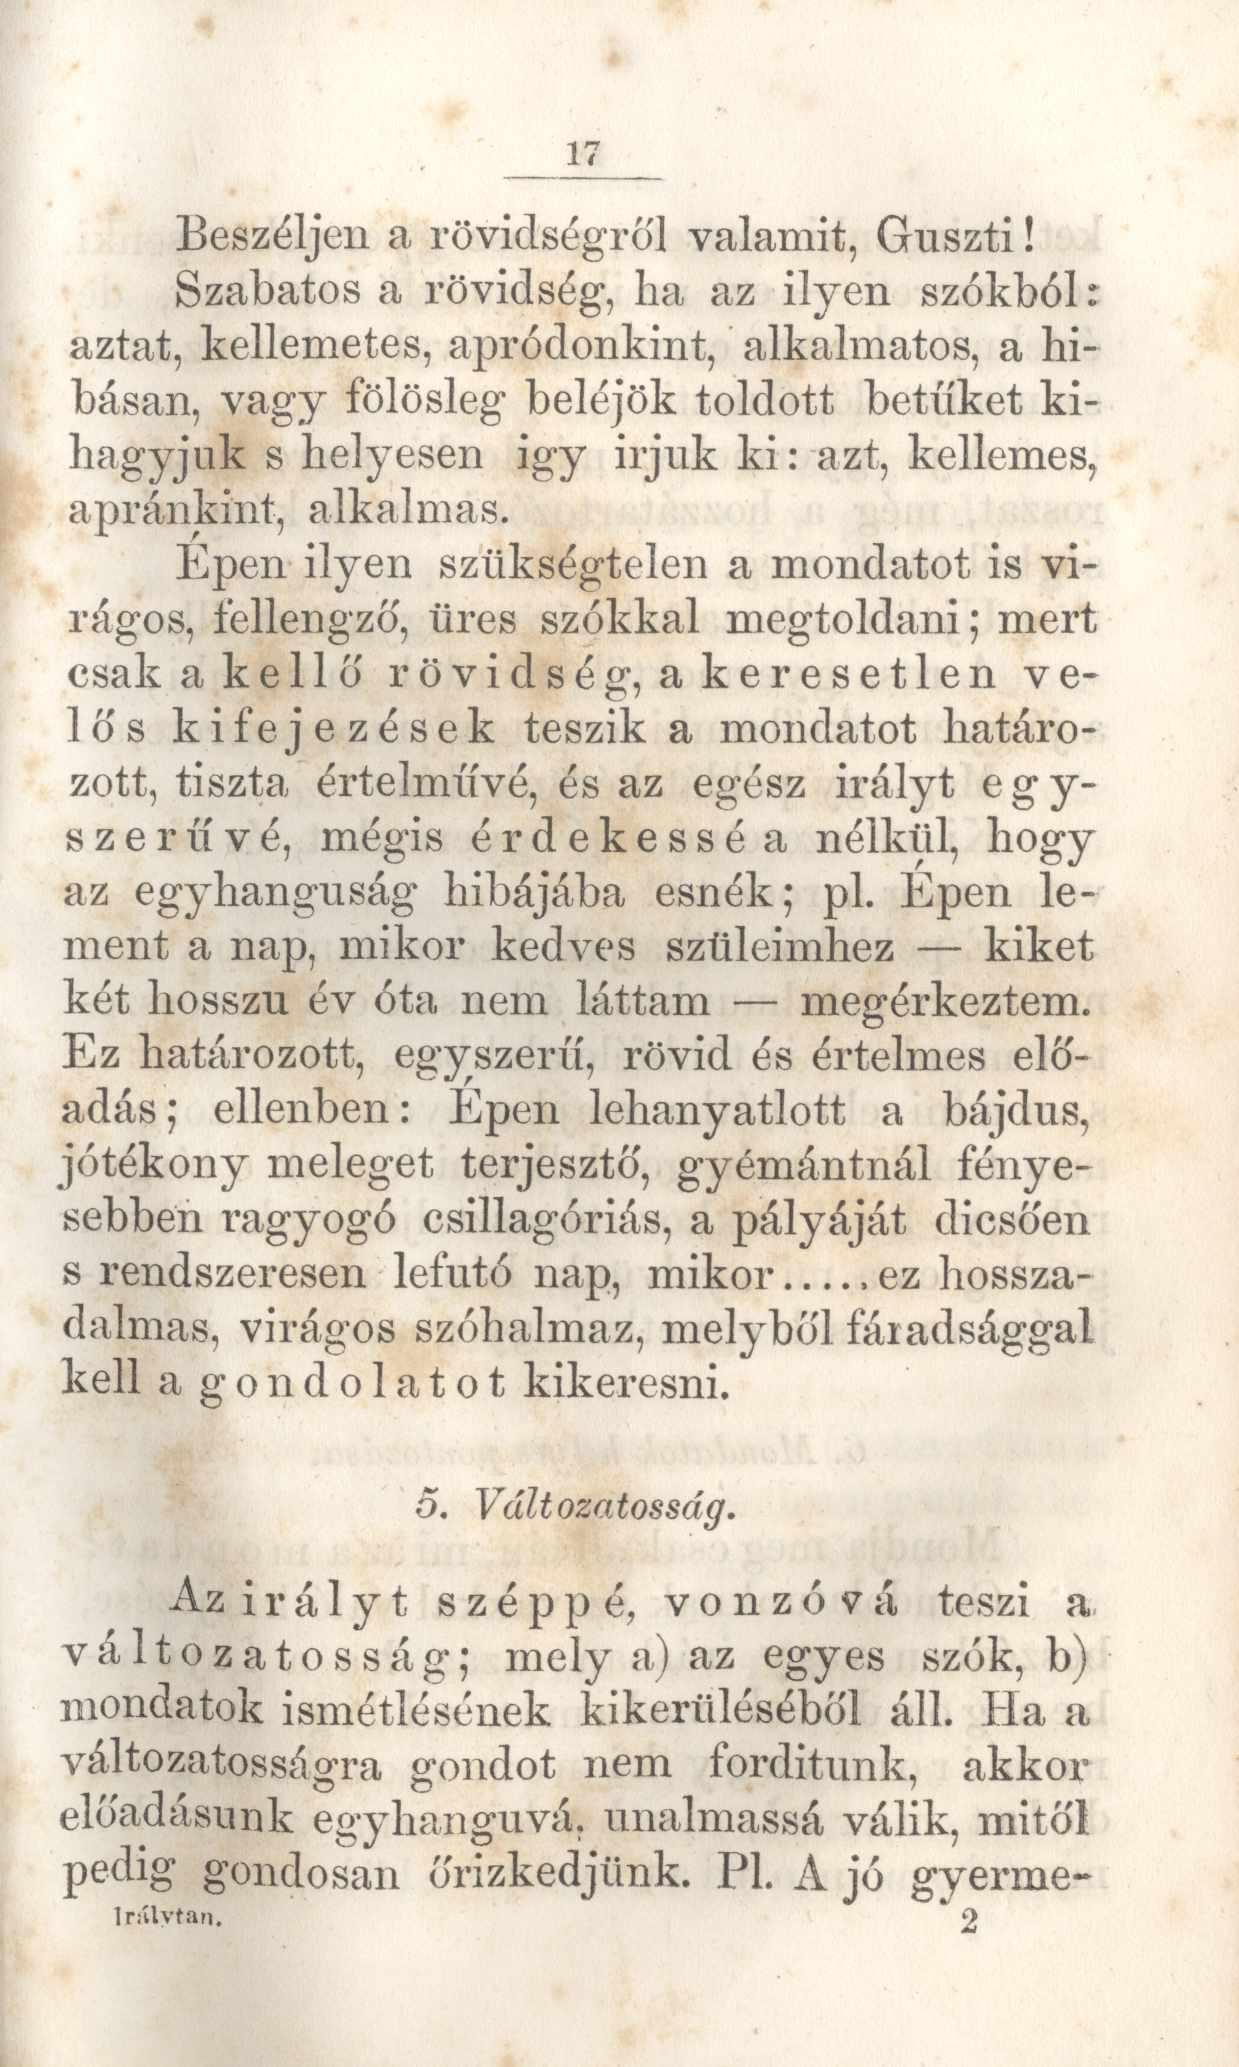 17
Beszéljen a rövidségről valamit, Guszti!
Szabatos a rövidség, ha az ilyen szókból:
aztat, kellemetes, apródonkint, alkalmatos, a hi-
básan, vagy fölösleg beléjök toldott betűket ki-
hagyjuk s helyesen igy irjuk ki: azt, kellemes,
apránkint, alkalmas.
Épen ilyen szükségtelen a mondatot is vi-
rágos, fellengző, üres szókkal megtoldani; mert
csak a kellő rövidség, a keresetlen ve-
lős kifejezések teszik a mondatot határo-
zott, tiszta értelművé, és az egész irályt egy-
szerűvé, mégis érdekessé a nélkül, hogy
az egyhanguság hibájába esnék; pl. Épen le-
ment a nap, mikor kedves szüleimhez — kiket
két hosszu év óta nem láttam — megérkeztem.
Ez határozott, egyszerű, rövid és értelmes elő-
adás; ellenben: Épen lehanyatlott a bájdus,
jótékony meleget terjesztő, gyémántnál fénye-
sebben ragyogó csillagóriás, a pályáját dicsően
s rendszeresen lefutó nap, mikor.....ez hossza-
dalmas, virágos szóhalmaz, melyből fáradsággal
kell a gondolatot kikeresni.
5. Változatosság.
Az irályt széppé, vonzóvá teszi a
változatosság; mely a) az egyes szók, b)
mondatok ismétlésének kikerüléséből áll. Ha a
változatosságra gondot nem forditunk, akkor
előadásunk egyhanguvá, unalmassá válik, mitől
pedig gondosan őrizkedjünk. Pl. A jó gyerme-
Irálytan. 2